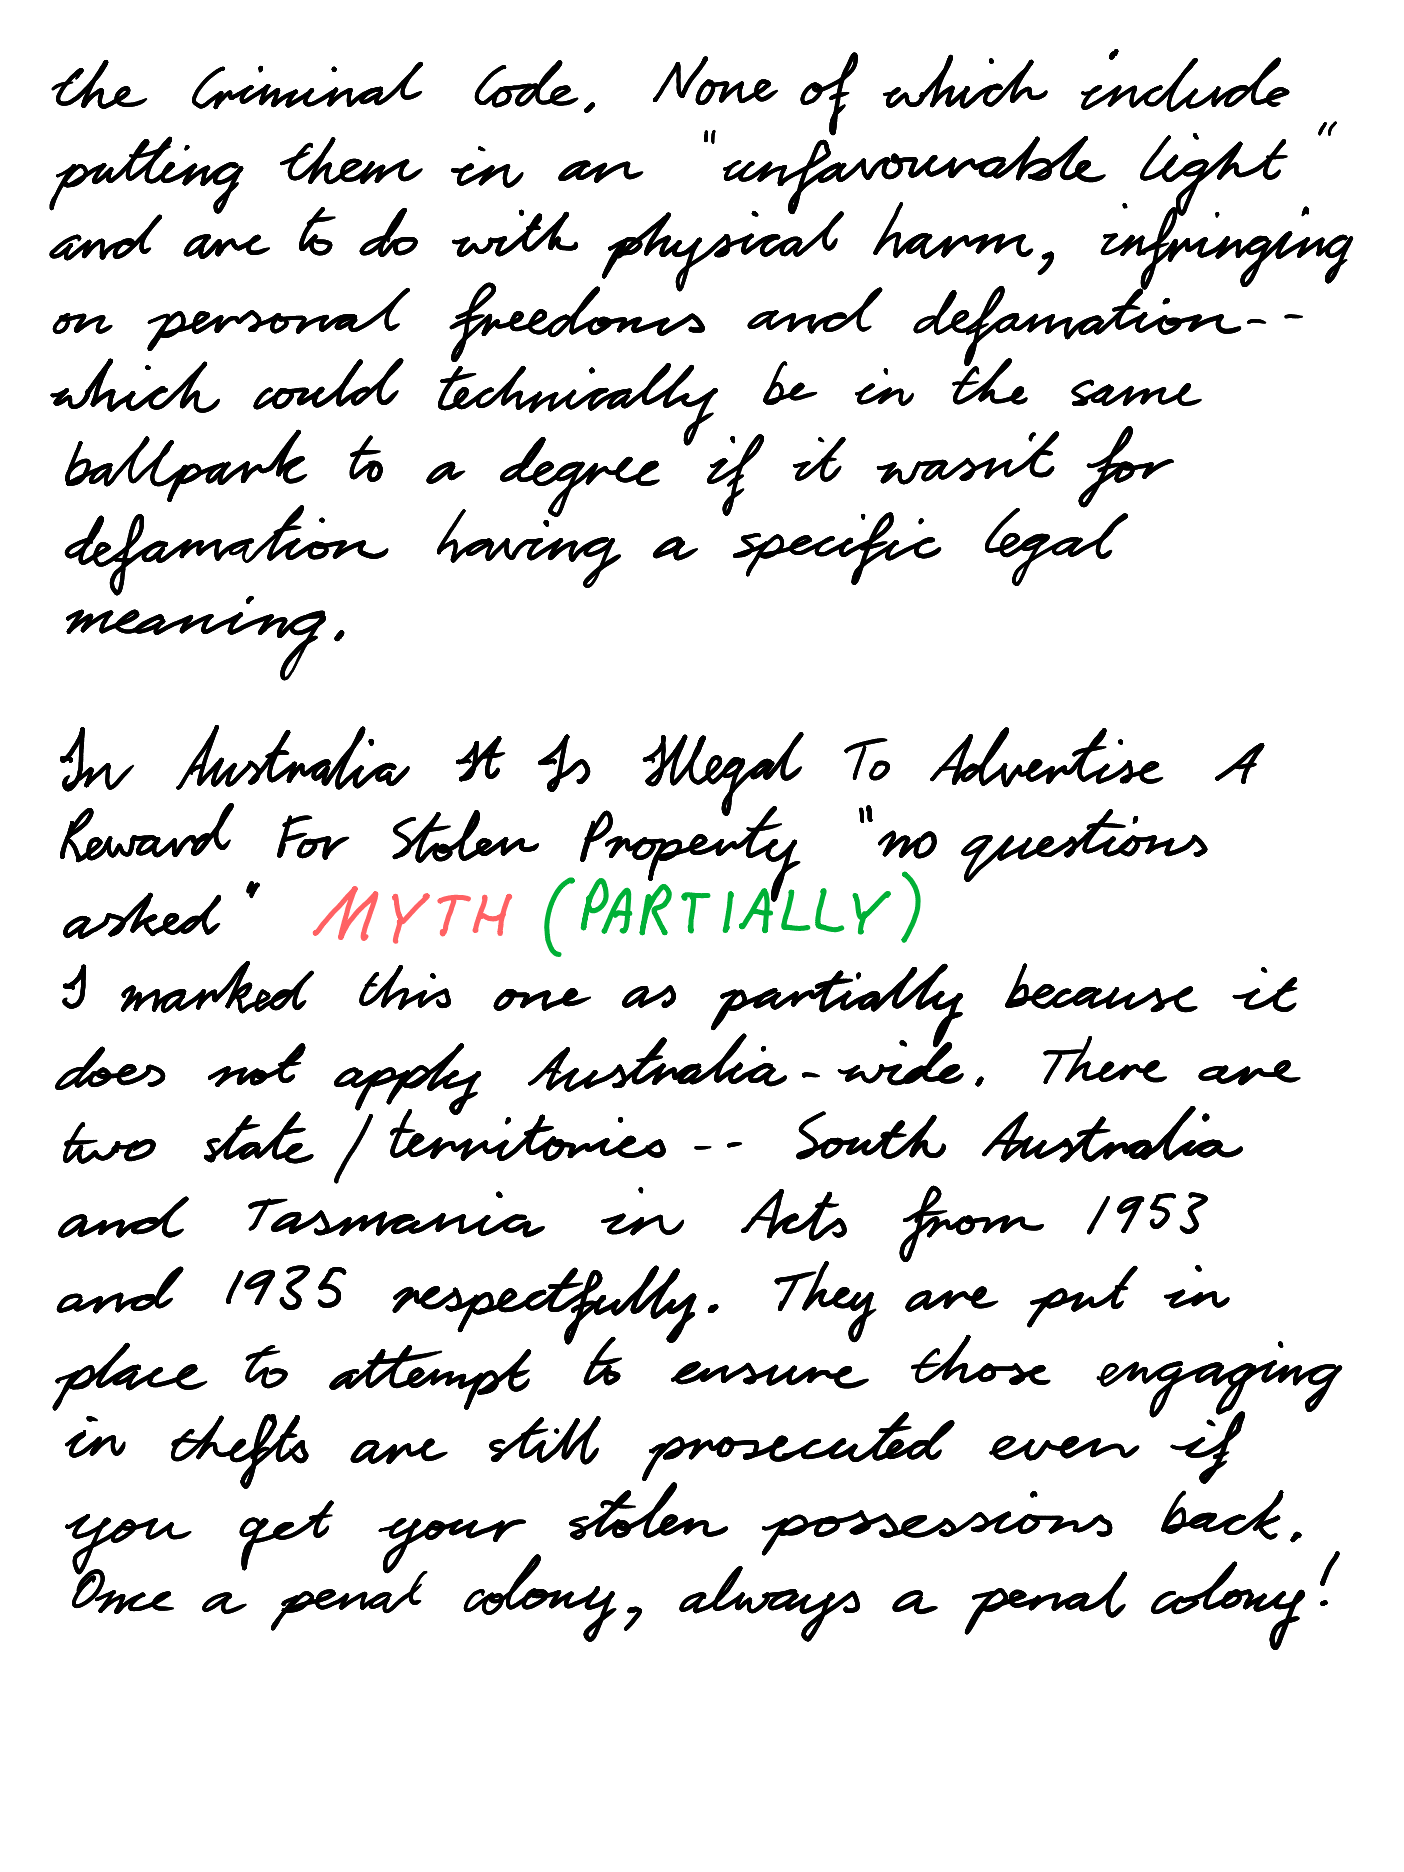 the Criminal Code. None of which include
putting them in an "unfavourable light"
and are to do with physical harm, infringing
on personal freedoms and defamation--
which could technically be in the same
ballpark to a degree if it wasn't for
defamation having a specific legal
meaning.
In Australia It Is Illegal To Advertise A
Reward For Stolen Property "no questions
asked" MYTH (PARTIALLY)
I marked this one as partially because it
does not apply Australia-wide. There are
two state/territories -- South Australia
and Tasmania in Acts from 1953
and 1935 respectfully. They are put in
place to attempt to ensure those engaging
in thefts are still prosecuted even if
you get your stolen possessions back.
Once a penal colony, always a penal colony!